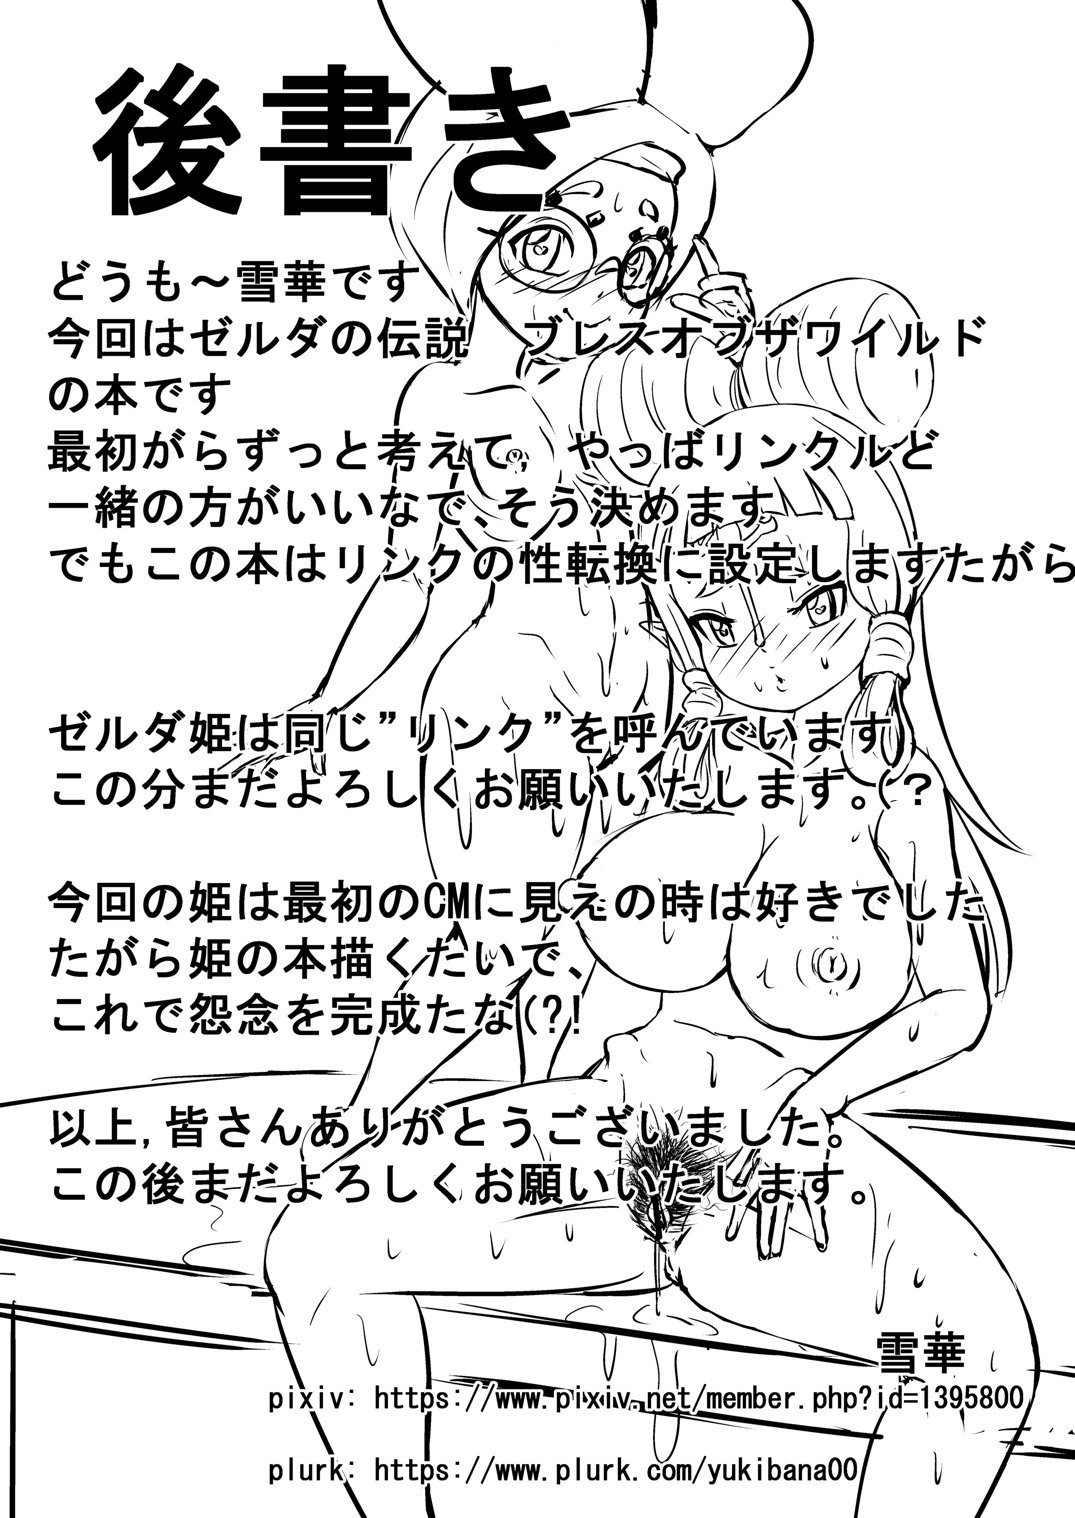 後書き
どうも～雪華です
今回はゼルダの伝説　ブレスオブザワイルド
の本です
最初がらずっと考えて,　やっぱリンクルど
一緒の方がいいなで､そう決めます
でもこの本はリンクの性転換に設定しますたがら
ゼルダ姫は同じ”リンク”を呼んでいます
この分まだよろしくお願いいたします。(？
今回の姫は最初のCMに見えの時は好きでした
たがら姫の本描くたいで、
これで怨念を完成たな(?!
以上,皆さんありがとうございました。
この後まだよろしくお願いいたします。
雪華
pixiv: https://www.pixiv.net/member.php?id=1395800
plurk: https://www.plurk.com/yukibana00